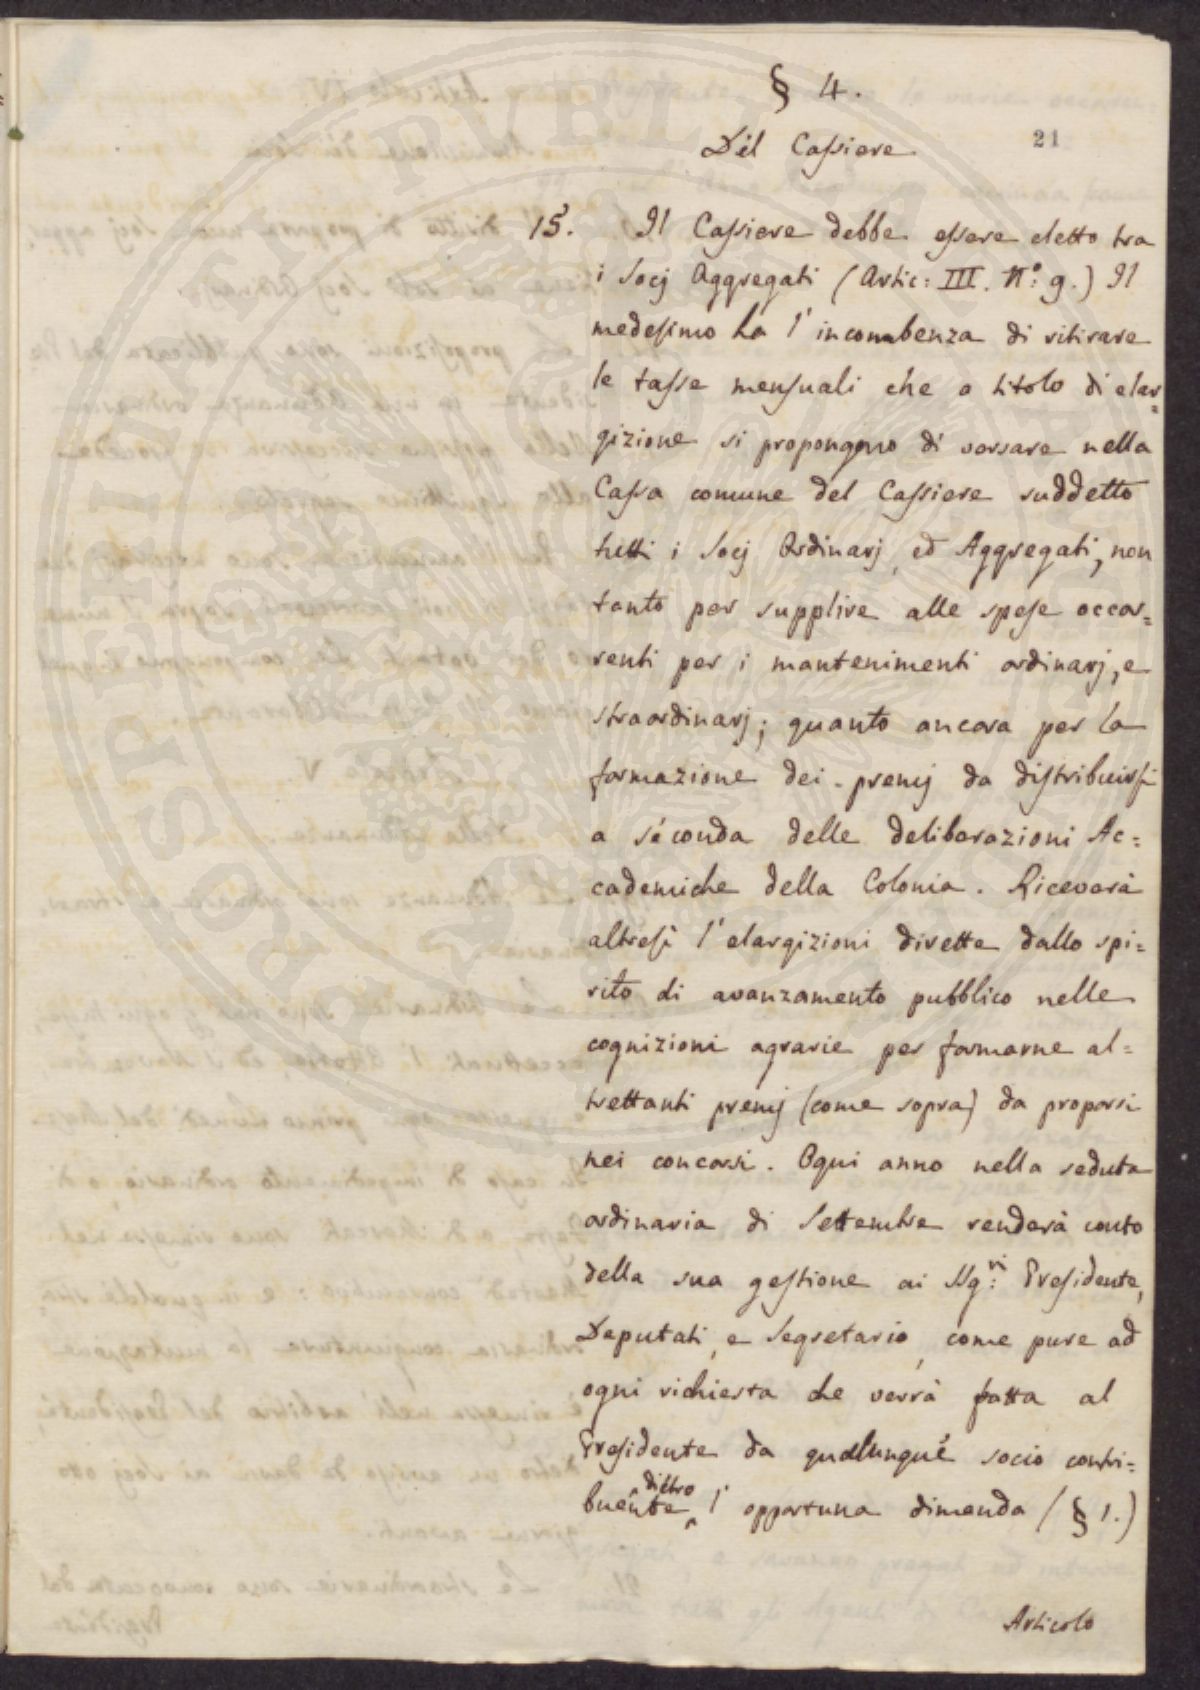 § 4.
Del Cassiere
21
15. Il Cassiere debbe essere eletto tra
i Socj Aggregati (Artic: III. N.° 9.) Il
medesimo ha l'incombenza di ritirare
le tasse mensuali che a titolo di elar=
gizione si propongono di versare nella
Cassa comune del Cassiere suddetto
tutti i Socj Ordinarj, ed Aggregati, non
tanto per supplire alle spese occor=
renti per i mantenimenti ordinarj, e
straordinarj; quanto ancora per la
formazione dei premj da distribuirsi
a seconda delle deliberazioni Ac=
cademiche della Colonia. Riceverà
altresì l'elargizioni dirette dallo spi=
rito di avanzamento pubblico nelle
cognizioni agrarie per formarne al=
trettanti premj (come sopra) da proporsi
nei concorsi. Ogni anno nella seduta
ordinaria di Settembre renderà conto
della sua gestione ai Sig:ri Presidente,
Deputati, e Segretario, come pure ad
ogni richiesta che verrà fatta al
Presidente da qualunque socio contri=
buente dietro l'opportuna dimanda (§ 1.)
Articolo